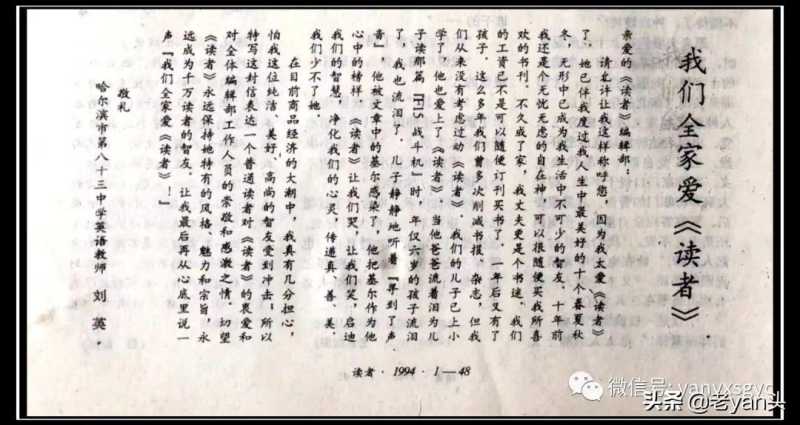 我们全家爱《读者》
亲爱的《读者》编辑部：
请允许让我这样称呼您，因为我太爱《读者》
了。她已伴我度过我人生中最美好的十个春夏秋
冬，无形中已成为我生活中不可少的智友。十年前
我还是个无忧无虑的自在神，可以很随便买我所喜
欢的书刊。不久成了家，我丈夫更是个书迷。我们
的工资已不是可以随便订刊买书了。一年后又有了
孩子，这么多年我们曾多次削减书报、杂志，但我
们从来没有考虑过动《读者》。我们的儿子已上小
学了，他也爱上了《读者》。当他爸爸流着泪为儿
子读那篇『F15战斗机』时，年仅六岁的孩子流泪
了，我也流泪了。儿子静静地听着『早到了声
音』，他被文章中的基尔感染了，他把基尔作为他
心中的榜样。《读者》让我们哭，让我们笑，启迪
我们的智慧，净化我们的心灵，传递真、善、美。
我们少不了她。
在目前商品经济的大潮中，我真有几分担心，
怕我这位纯洁、美好、高尚的智友受到冲击；所以
特写这封信表达一个普通读者对《读者》的衷爱和
对全体编辑部工作人员的崇敬和感激之情。切望
《读者》永远保持她特有的风格、魅力和宗旨，永
远成为千万读者的智友。让我最后再从心底里说一
声“我们全家爱《读者》！”
敬礼
哈尔滨市第八十三中学英语教师 刘英
读者·1994·1—48
微信号: yanyxsgyc
头条 @老yan头